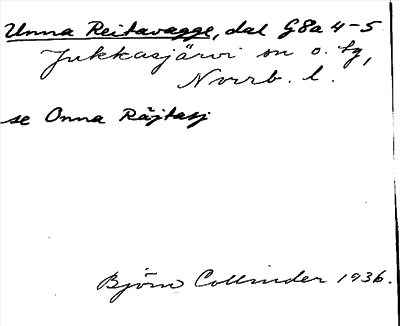 Unna Reitavagge, dal G8a 4-5
Jukkasjärvi sn o. tg,
Norrb. l.
se Onna Räjtasj
Björn Collinder 1936.